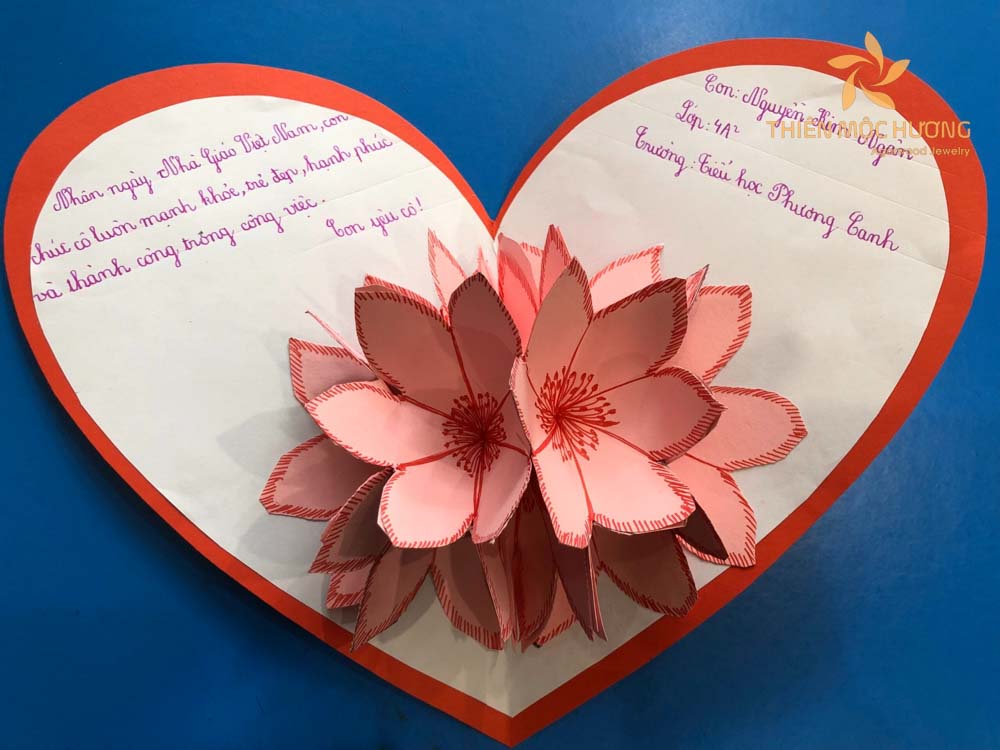 Nhân ngày Nhà Giáo Việt Nam, con
chúc cô luôn mạnh khỏe, trẻ đẹp, hạnh phúc
và thành công trong công việc.
Con yêu cô!
Con: Nguyễn Kim Ngân
Lớp: 4A²
Trường: Tiểu học Phương Canh
THIÊN MỘC HƯƠNG
Agarwood Jewelry